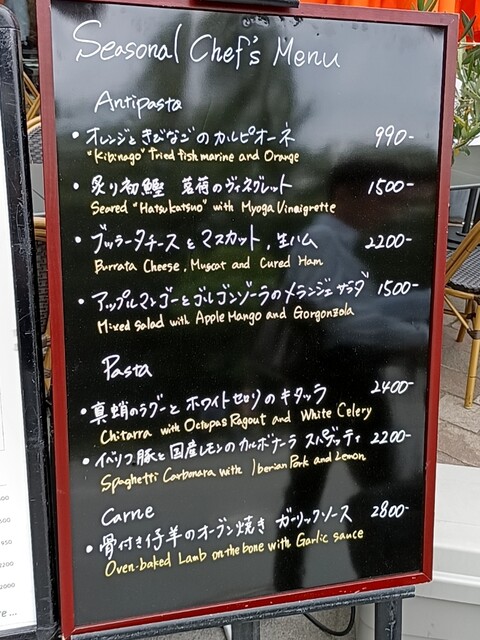 Seasonal Chef's Menu
Antipasta
・オレンジときびなごのカルピオーネ 990-
"Kibinago" fried fish marine and Orange
・炙り初鰹 茗荷のヴィネグレット 1500-
Seared "Hatsukatsuo" with Myoga Vinaigrette
・ブッラータチーズとマスカット、生ハム 2200-
Burrata Cheese, Muscat and Cured Ham
・アップルマンゴーとゴルゴンゾーラのメランジェサラダ 1500-
Mixed salad with Apple Mango and Gorgonzola
Pasta
・真蛸のラグーとホワイトセロリのキタッラ 2400-
Chitarra with Octopus Ragout and White Celery
・イベリコ豚と国産レモンのカルボナーラ スパゲッティ 2200-
Spaghetti Carbonara with Iberian Pork and Lemon
Carne
・骨付き仔羊のオーブン焼き ガーリックソース 2800-
Oven-baked Lamb on the bone with Garlic sauce